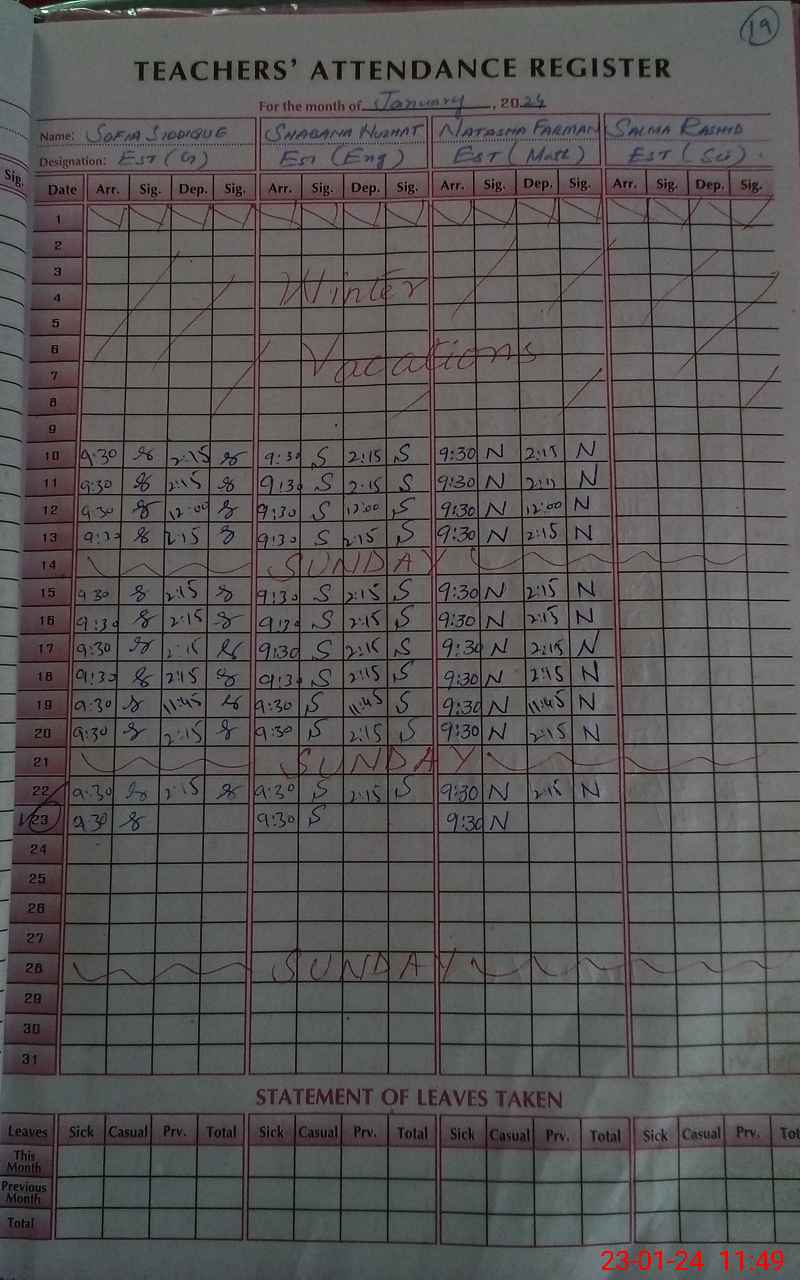 19
TEACHERS' ATTENDANCE REGISTER
For the month of January, 2024
Name: SOFIA SIDDIQUE SHABANA NUZHAT NATASHA FARMAN SALMA RASHID
Designation: EST (G) EST (Eng) EST (Math) EST (Sci).
Sig. Date Arr. Sig. Dep. Sig. Arr. Sig. Dep. Sig. Arr. Sig. Dep. Sig. Arr. Sig. Dep. Sig.
1
2
3
4 Winter
5
6
7 Vacations
8
9
10 9:30 2:15 9:30 S 2:15 S 9:30 N 2:15 N
11 9:30 2:15 9:30 S 2:15 S 9:30 N 2:15 N
12 9:30 12:00 9:30 S 12:00 S 9:30 N 12:00 N
13 9:30 2:15 9:30 S 2:15 S 9:30 N 2:15 N
14 SUNDAY
15 9:30 2:15 9:30 S 2:15 S 9:30 N 2:15 N
16 9:30 2:15 9:30 S 2:15 S 9:30 N 2:15 N
17 9:30 2:15 9:30 S 2:15 S 9:30 N 2:15 N
18 9:30 2:15 9:30 S 2:15 S 9:30 N 2:15 N
19 9:30 11:45 9:30 S 11:45 S 9:30 N 11:45 N
20 9:30 2:15 9:30 S 2:15 S 9:30 N 2:15 N
21 SUNDAY
22 9:30 2:15 9:30 S 2:15 S 9:30 N 2:15 N
23 9:30 9:30 S 9:30 N
24
25
26
27
28 SUNDAY
29
30
31
STATEMENT OF LEAVES TAKEN
Leaves Sick Casual Prv. Total Sick Casual Prv. Total Sick Casual Prv. Total Sick Casual Prv. Tot
This
Month
Previous
Month
Total
23-01-24 11:49